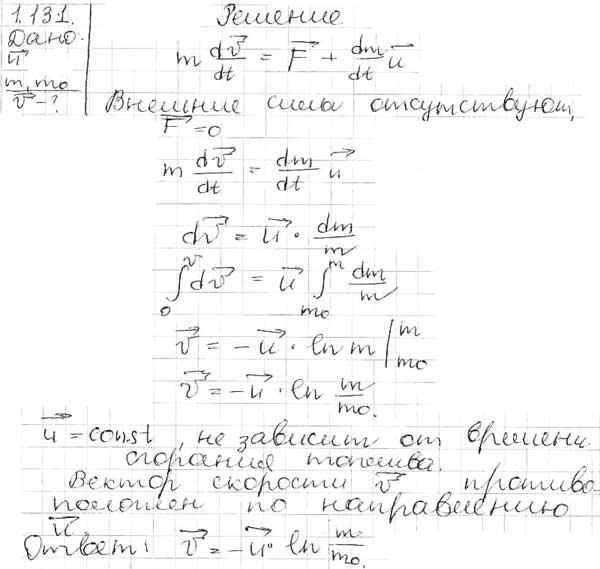 1.131.
Дано:
u⃗
m, m₀
v⃗ - ?
Решение
m dv⃗/dt = F⃗ + dm/dt u⃗
Внешние силы отсутствуют,
F⃗ = 0
m dv⃗/dt = dm/dt u⃗
dv⃗ = u⃗ · dm/m
∫₀^v dv⃗ = u⃗ ∫_{m₀}^m dm/m
v⃗ = -u⃗ · ln m |_{m₀}^m
v⃗ = -u⃗ · ln m/m₀.
u⃗ = const, не зависит от времени
сгорания топлива.
Вектор скорости v⃗ противо
положен по направлению
u⃗.
Ответ: v⃗ = -u⃗ · ln m/m₀.